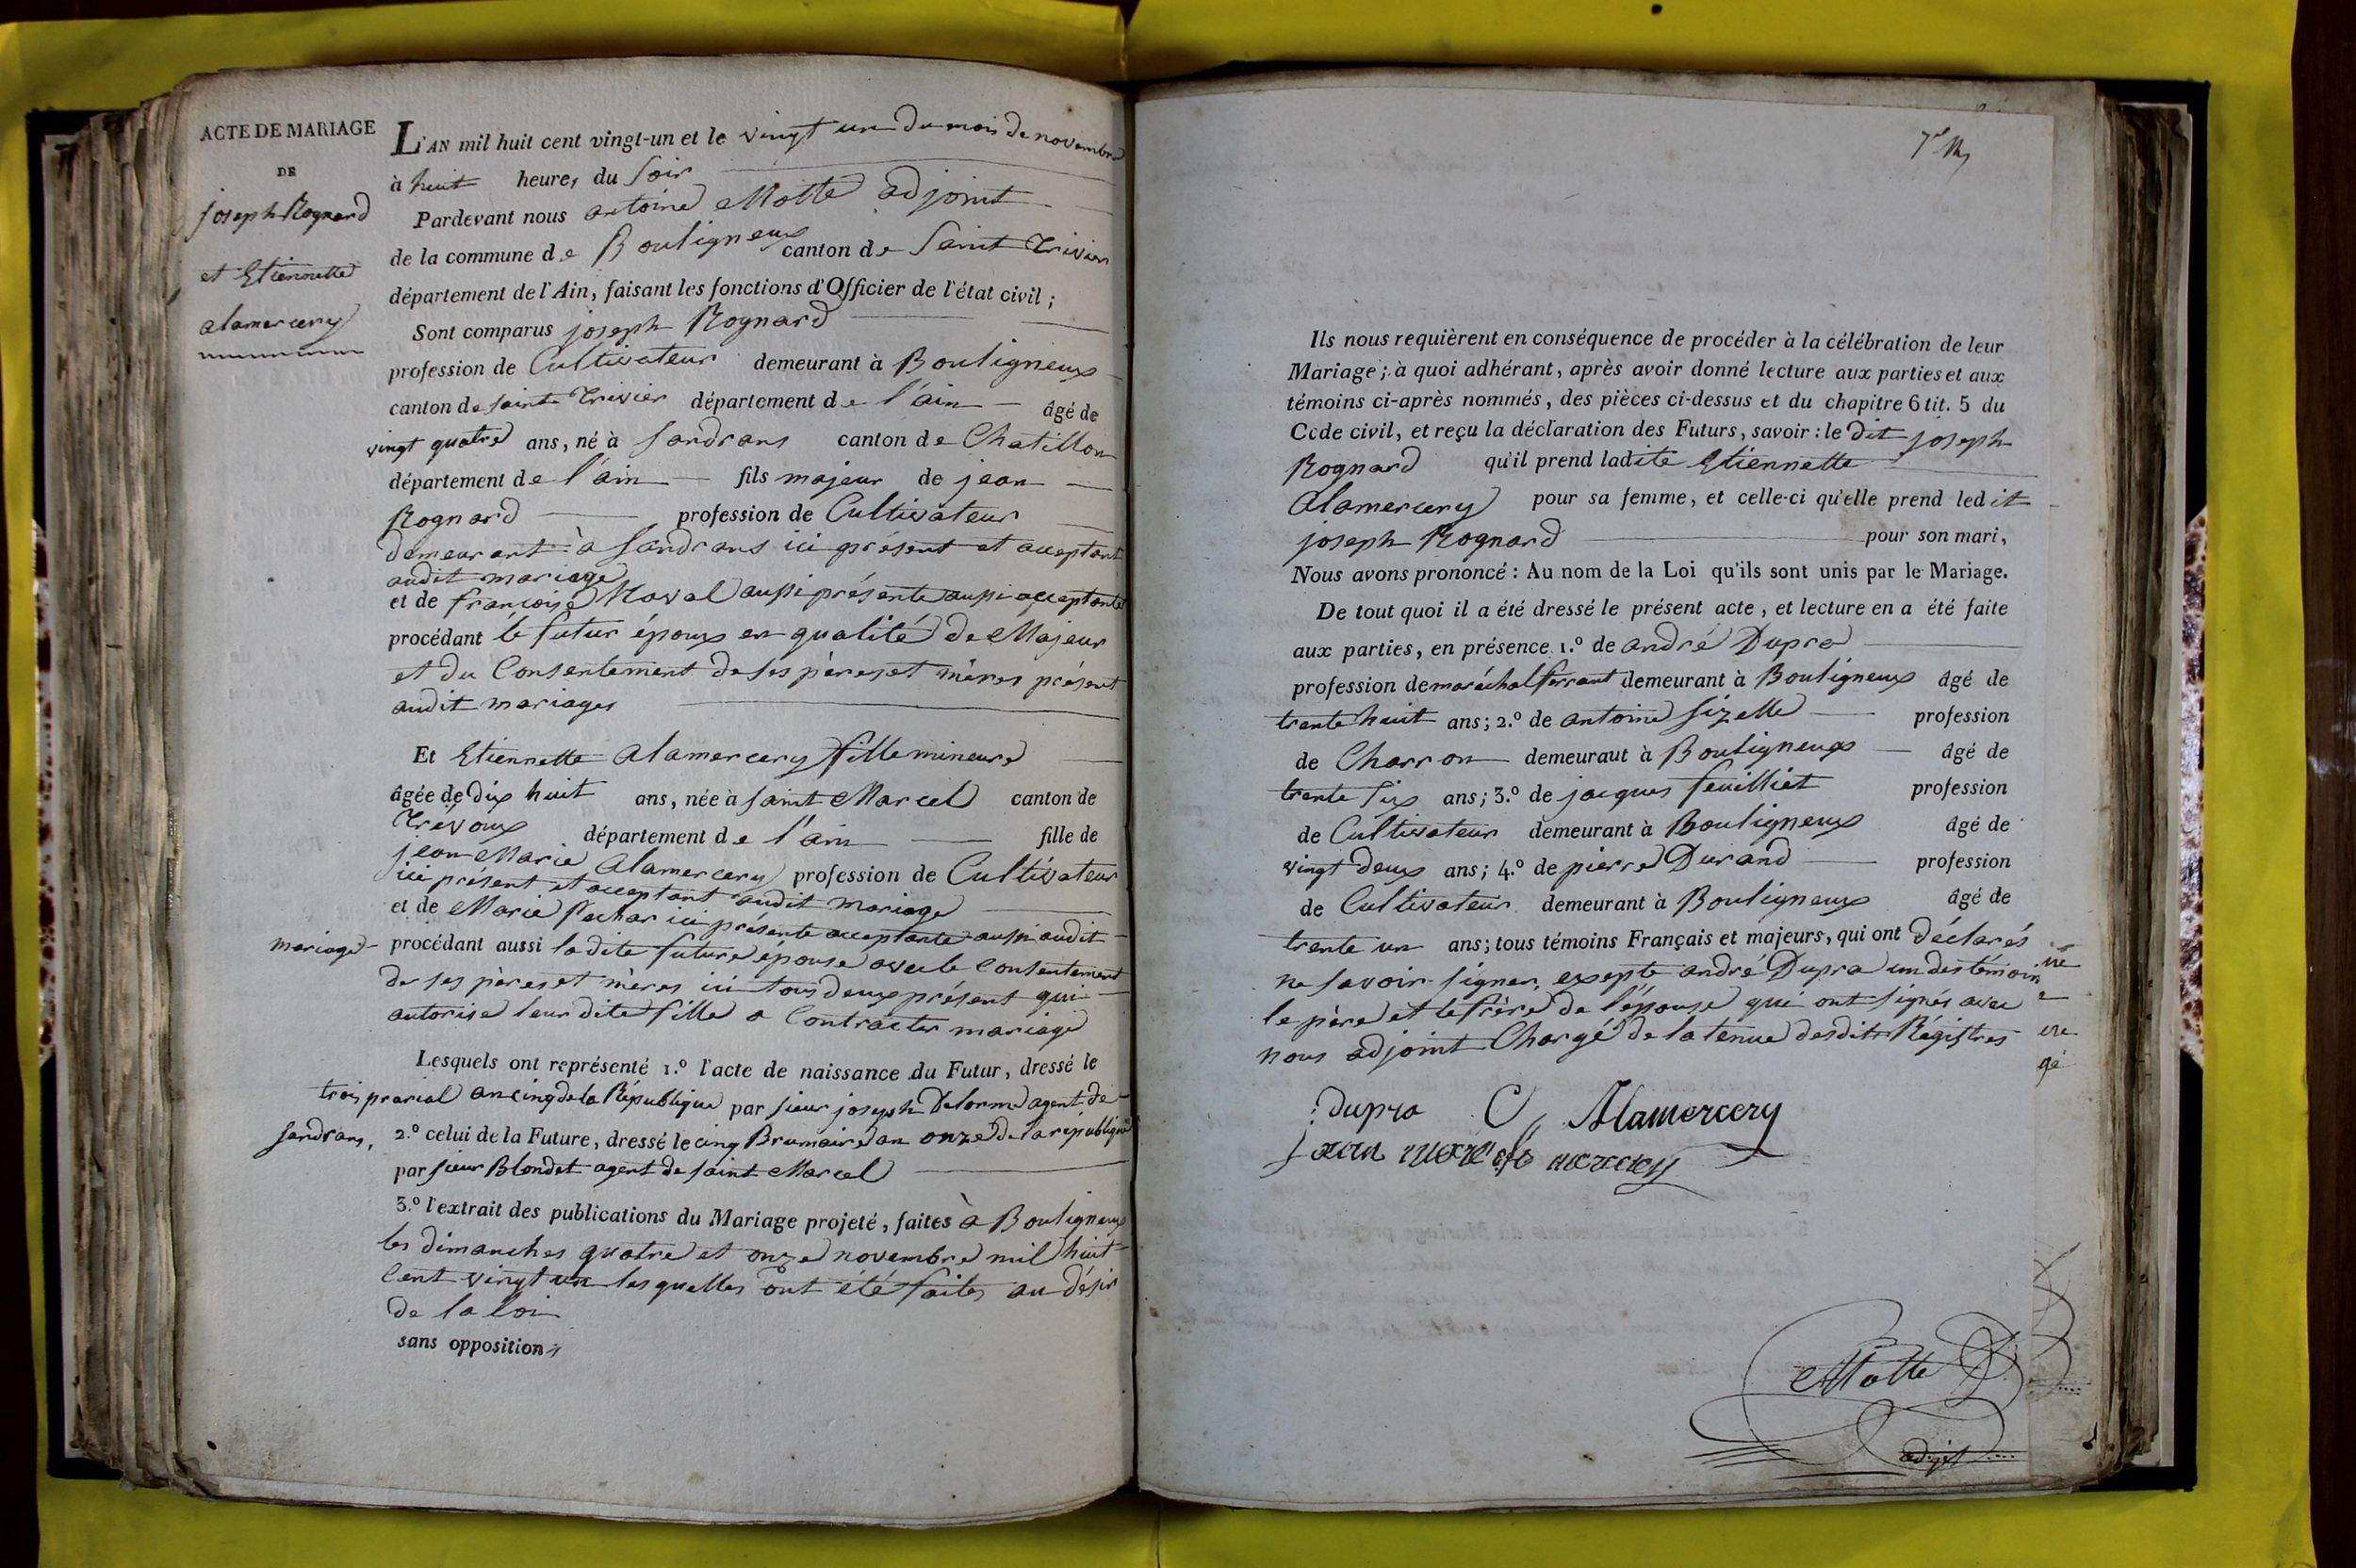 ACTE DE MARIAGE
DE
joseph Rognard
et Etiennette
alamercery
L'AN mil huit cent vingt-un et le vingt un du mois de novembre
à huit heures du soir
Pardevant nous antoine Motte adjoint
de la commune de Bouligneux canton de Saint Trivier
département de l'Ain, faisant les fonctions d'Officier de l'état civil ;
Sont comparus joseph Rognard
profession de Cultivateur demeurant à Bouligneux
canton de sainte Trivier département de l'ain âgé de
vingt quatre ans, né à sandrans canton de Chatillon
département de l'ain fils majeur de jean
Rognard profession de Cultivateur
demeurant à Sandrans ici présent et acceptant
audit mariage
et de françoise Noval aussi présente aussi acceptante
procédant le futur époux en qualité de Majeur
et du Consentement de ses pères et mères présent
audit mariages
Et Etiennette alamercery fille mineure
âgée de dix huit ans, née à saint Marcel canton de
Trévoux département de l'ain fille de
jean Marie alamercery profession de Cultivateur
ici présent et acceptant audit mariage
et de Marie Pachar ici présente acceptante aussi audit
mariage procédant aussi la dite future épouse avec le Consentement
de ses pères et mères ici tous deux présent qui
autorise leur dite fille a Contracter mariage
Lesquels ont représenté 1.º l'acte de naissance du Futur, dressé le
trois prarial an cinq de la République par sieur joseph Delorme agent de
sandrans, 2.º celui de la Future, dressé le cinq Brumaire an onze de la république
par sieur Blondet agent de saint Marcel
3.º l'extrait des publications du Mariage projeté, faites à Bouligneux
les dimanches quatre et onze novembre mil huit
Cent vingt un les quelles ont été faites au désir
de la loi
sans opposition
Ils nous requièrent en conséquence de procéder à la célébration de leur
Mariage ; à quoi adhérant, après avoir donné lecture aux parties et aux
témoins ci-après nommés, des pièces ci-dessus et du chapitre 6 tit. 5 du
Code civil, et reçu la déclaration des Futurs, savoir : le dit joseph
Rognard qu'il prend ladite Etiennette
alamercery pour sa femme, et celle-ci qu'elle prend ledit
joseph Rognard pour son mari,
Nous avons prononcé : Au nom de la Loi qu'ils sont unis par le Mariage.
De tout quoi il a été dressé le présent acte, et lecture en a été faite
aux parties, en présence 1.º de andré Dupra
profession de maréchal ferrant demeurant à Bouligneux âgé de
trente huit ans ; 2.º de antoine sizelle profession
de Charron demeuraut à Bouligneux âgé de
trente six ans ; 3.º de jacques feuilliet profession
de Cultivateur demeurant à Bouligneux âgé de
vingt deux ans ; 4.º de pierre Durand profession
de Cultivateur demeurant à Bouligneux âgé de
trente un ans ; tous témoins Français et majeurs, qui ont déclarés
ne savoir signer, exepte andré Dupra un des témoin
le père et le frère de l'épouse qui ont signés avec
nous adjoint Chargé de la tenue desdits Régistres
dupra C, Alamercery
jean marie ala mercery
Motte
adjt